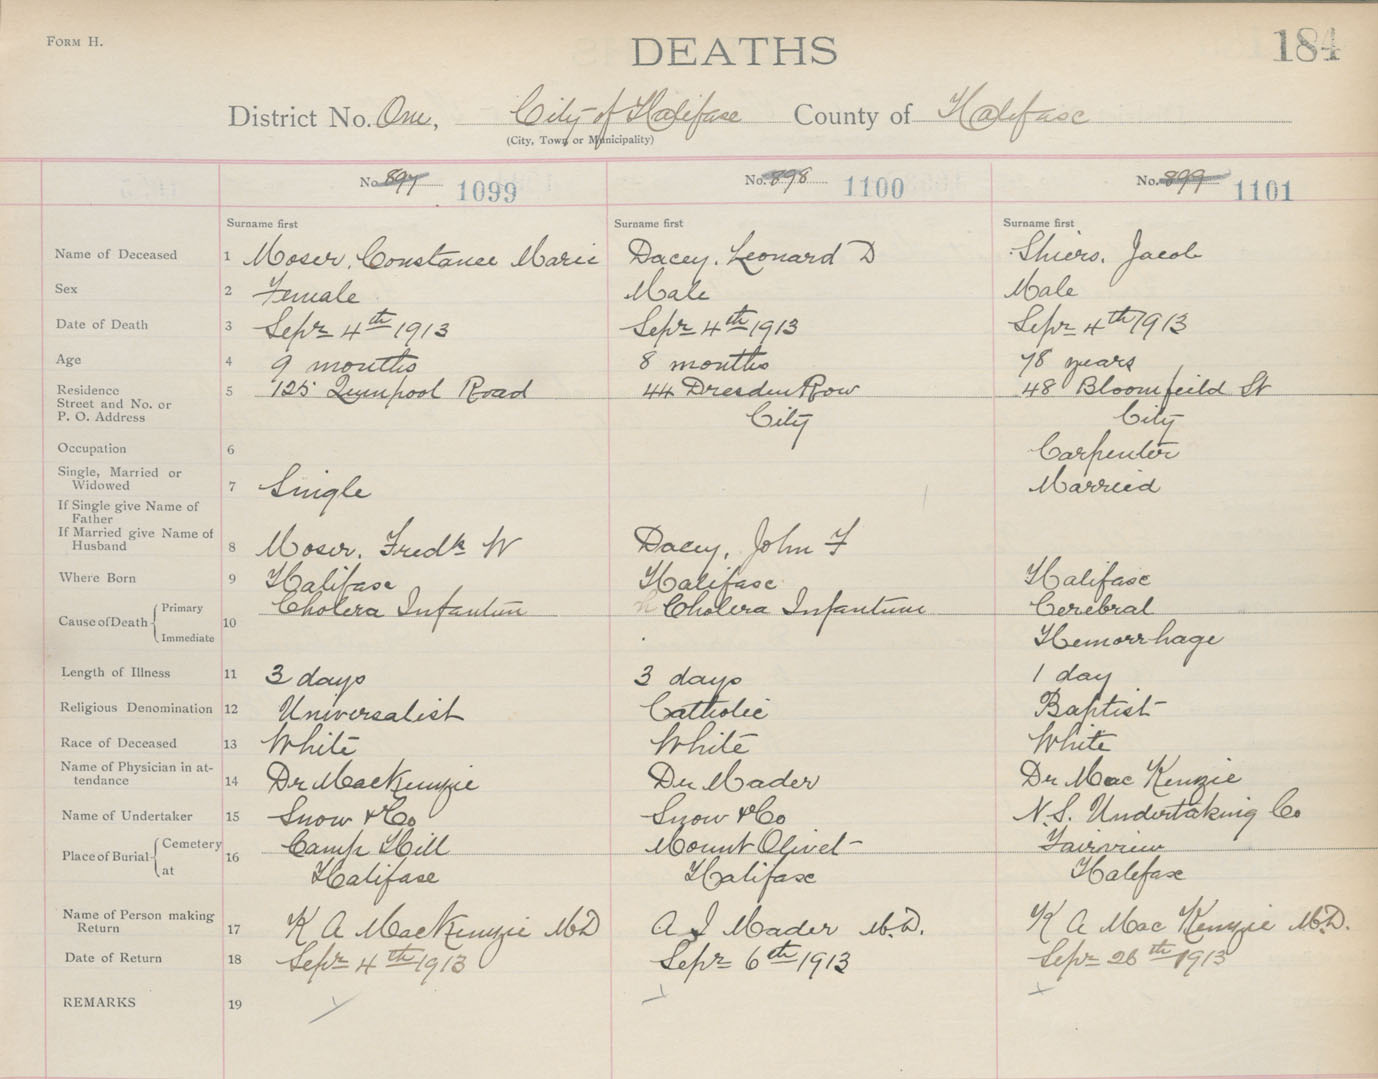 FORM H.
DEATHS
184
District No. One, City of Halifax County of Halifax
(City, Town or Municipality)
No. 897 1099
No. 898 1100
No. 899 1101
Surname first Surname first Surname first
Name of Deceased 1 Moser, Constance Marie Dacey, Leonard D Shiers, Jacob
Sex 2 Female Male Male
Date of Death 3 Sepr 4th 1913 Sepr 4th 1913 Sepr 4th 1913
Age 4 9 months 8 months 78 years
Residence
Street and No. or
P. O. Address
5 125 Quinpool Road 44 Dresden Row 48 Bloomfeild St
City City
Occupation 6 Carpenter
Single, Married or
Widowed 7 Single Married
If Single give Name of
Father
If Married give Name of
Husband 8 Moser, Fredk W Dacey, John F
Where Born 9 Halifax Halifax Halifax
Cause of Death Primary Immediate 10 Cholera Infantum Cholera Infantum Cerebral
Hemorrhage
Length of Illness 11 3 days 3 days 1 day
Religious Denomination 12 Universalist Catholic Baptist
Race of Deceased 13 White White White
Name of Physician in at-
tendance 14 Dr MacKenzie Dr Mader Dr MacKenzie
Name of Undertaker 15 Snow & Co Snow & Co N.S. Undertaking Co
Place of Burial Cemetery at 16 Camp Hill Mount Olivet Fairview
Halifax Halifax Halifax
Name of Person making
Return 17 K A MacKenzie MD A I Mader M.D. K A MacKenzie M.D.
Date of Return 18 Sepr 4th 1913 Sepr 6th 1913 Sepr 26th 1913
REMARKS 19